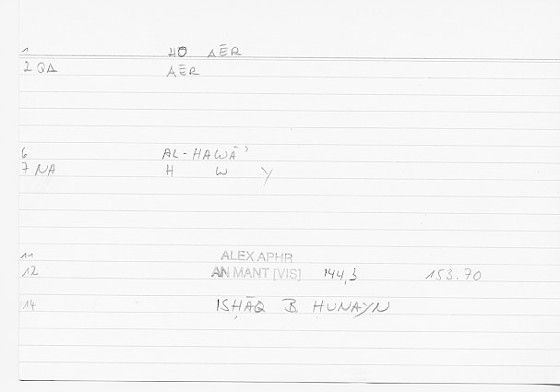 1 HO AĒR
2 QA AĒR
6 AL-HAWĀʾ
7 NA H W Y
11 ALEX APHR
12 AN MANT [VIS] 144,3 153.70
14 ISḤĀQ B HUNAYN